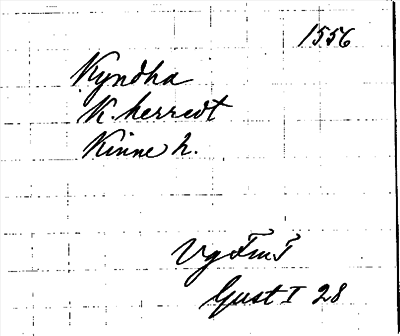 1556
Kyndha
K. herredt
Kinne h.
Vg Fm I
Gust I 28